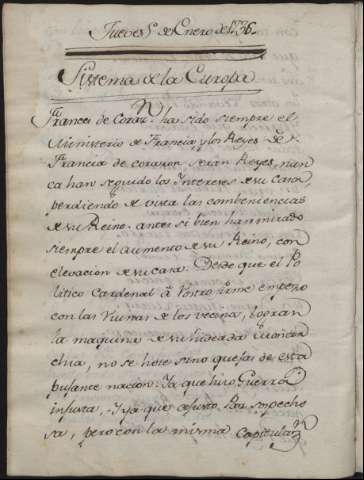 Jueves 5 de Enero de 1736.
Sistema de la Europa.
Frances de Corazn. ha sido siempre el
Ministerio de Francia y los Reyes de
Francia de corazon seran Reyes, nun
ca han seguido los Intereses de su Casa,
perdiendo de vista las combeniencias
de su Reino. antes si bien han mirado
siempre el aumento de su Reino, con
elevacion de su casa. Desde que el Po
litico Cardenal
con las Ruinas de los vecinos, lograr
la maquina de su Ideada Monar
chia, no se hoie sino quejas de esta
pujante nacion. Ya que hizo Guerra
injusta, Y ya que ajusto Paz sospecho
sa, pero con la misma Capitulaz.n